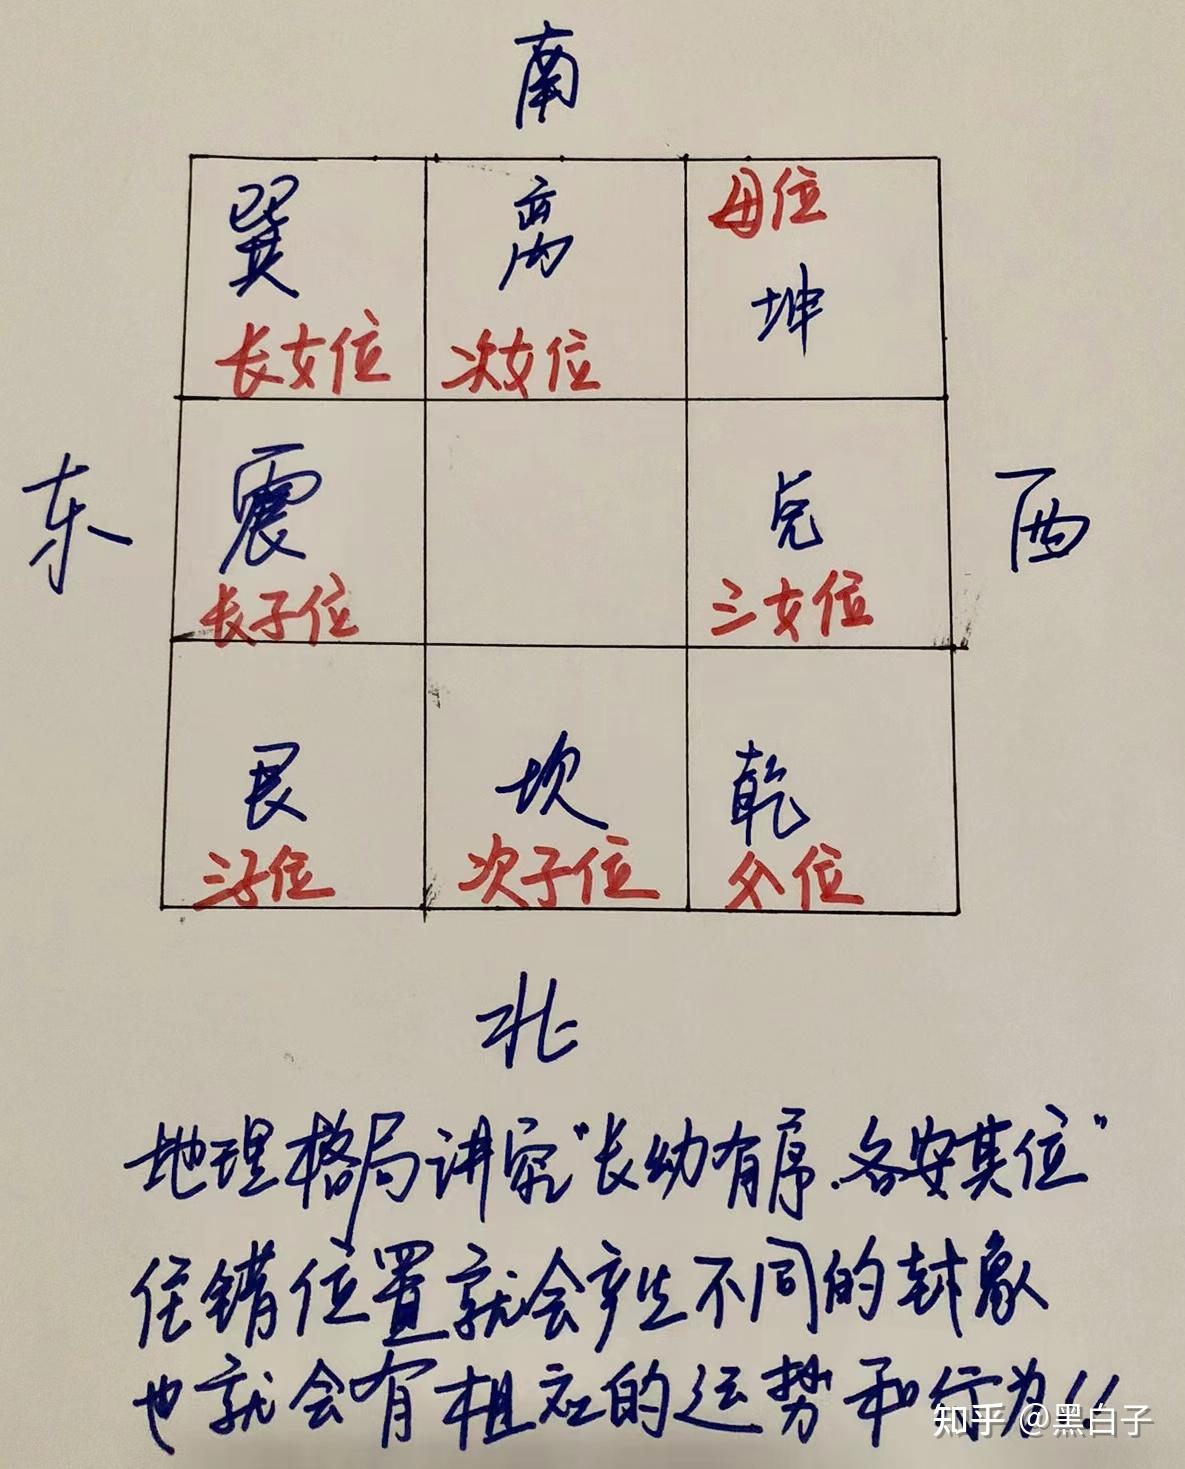 南
巽
离
母位
坤
长女位
次女位
东
震
兑
西
长子位
三女位
艮
坎
乾
三子位
次子位
父位
北
地理格局讲究“长幼有序.各安其位”
住错位置就会产生不同的卦象
也就会有相应的运势和行为!!
知乎 @黑白子